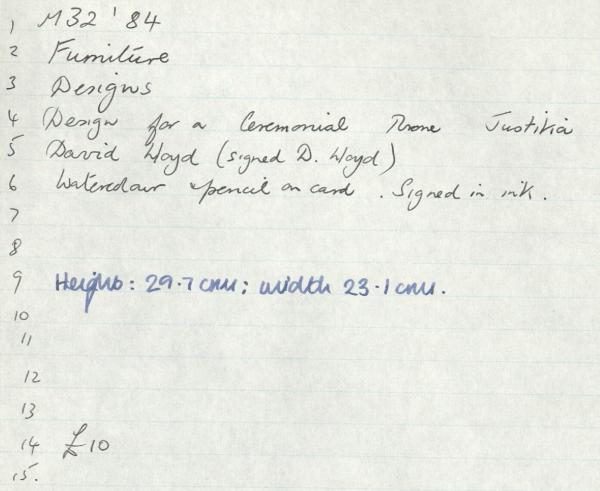 1 M32 '84
2 Furniture
3 Designs
4 Design for a Ceremonial Throne Justitia
5 David Lloyd (signed D. Lloyd)
6 Watercolour & pencil on card. Signed in ink.
7
8
9 Height: 29.7 cms; width 23.1 cms.
10
11
12
13
14 £10
15.